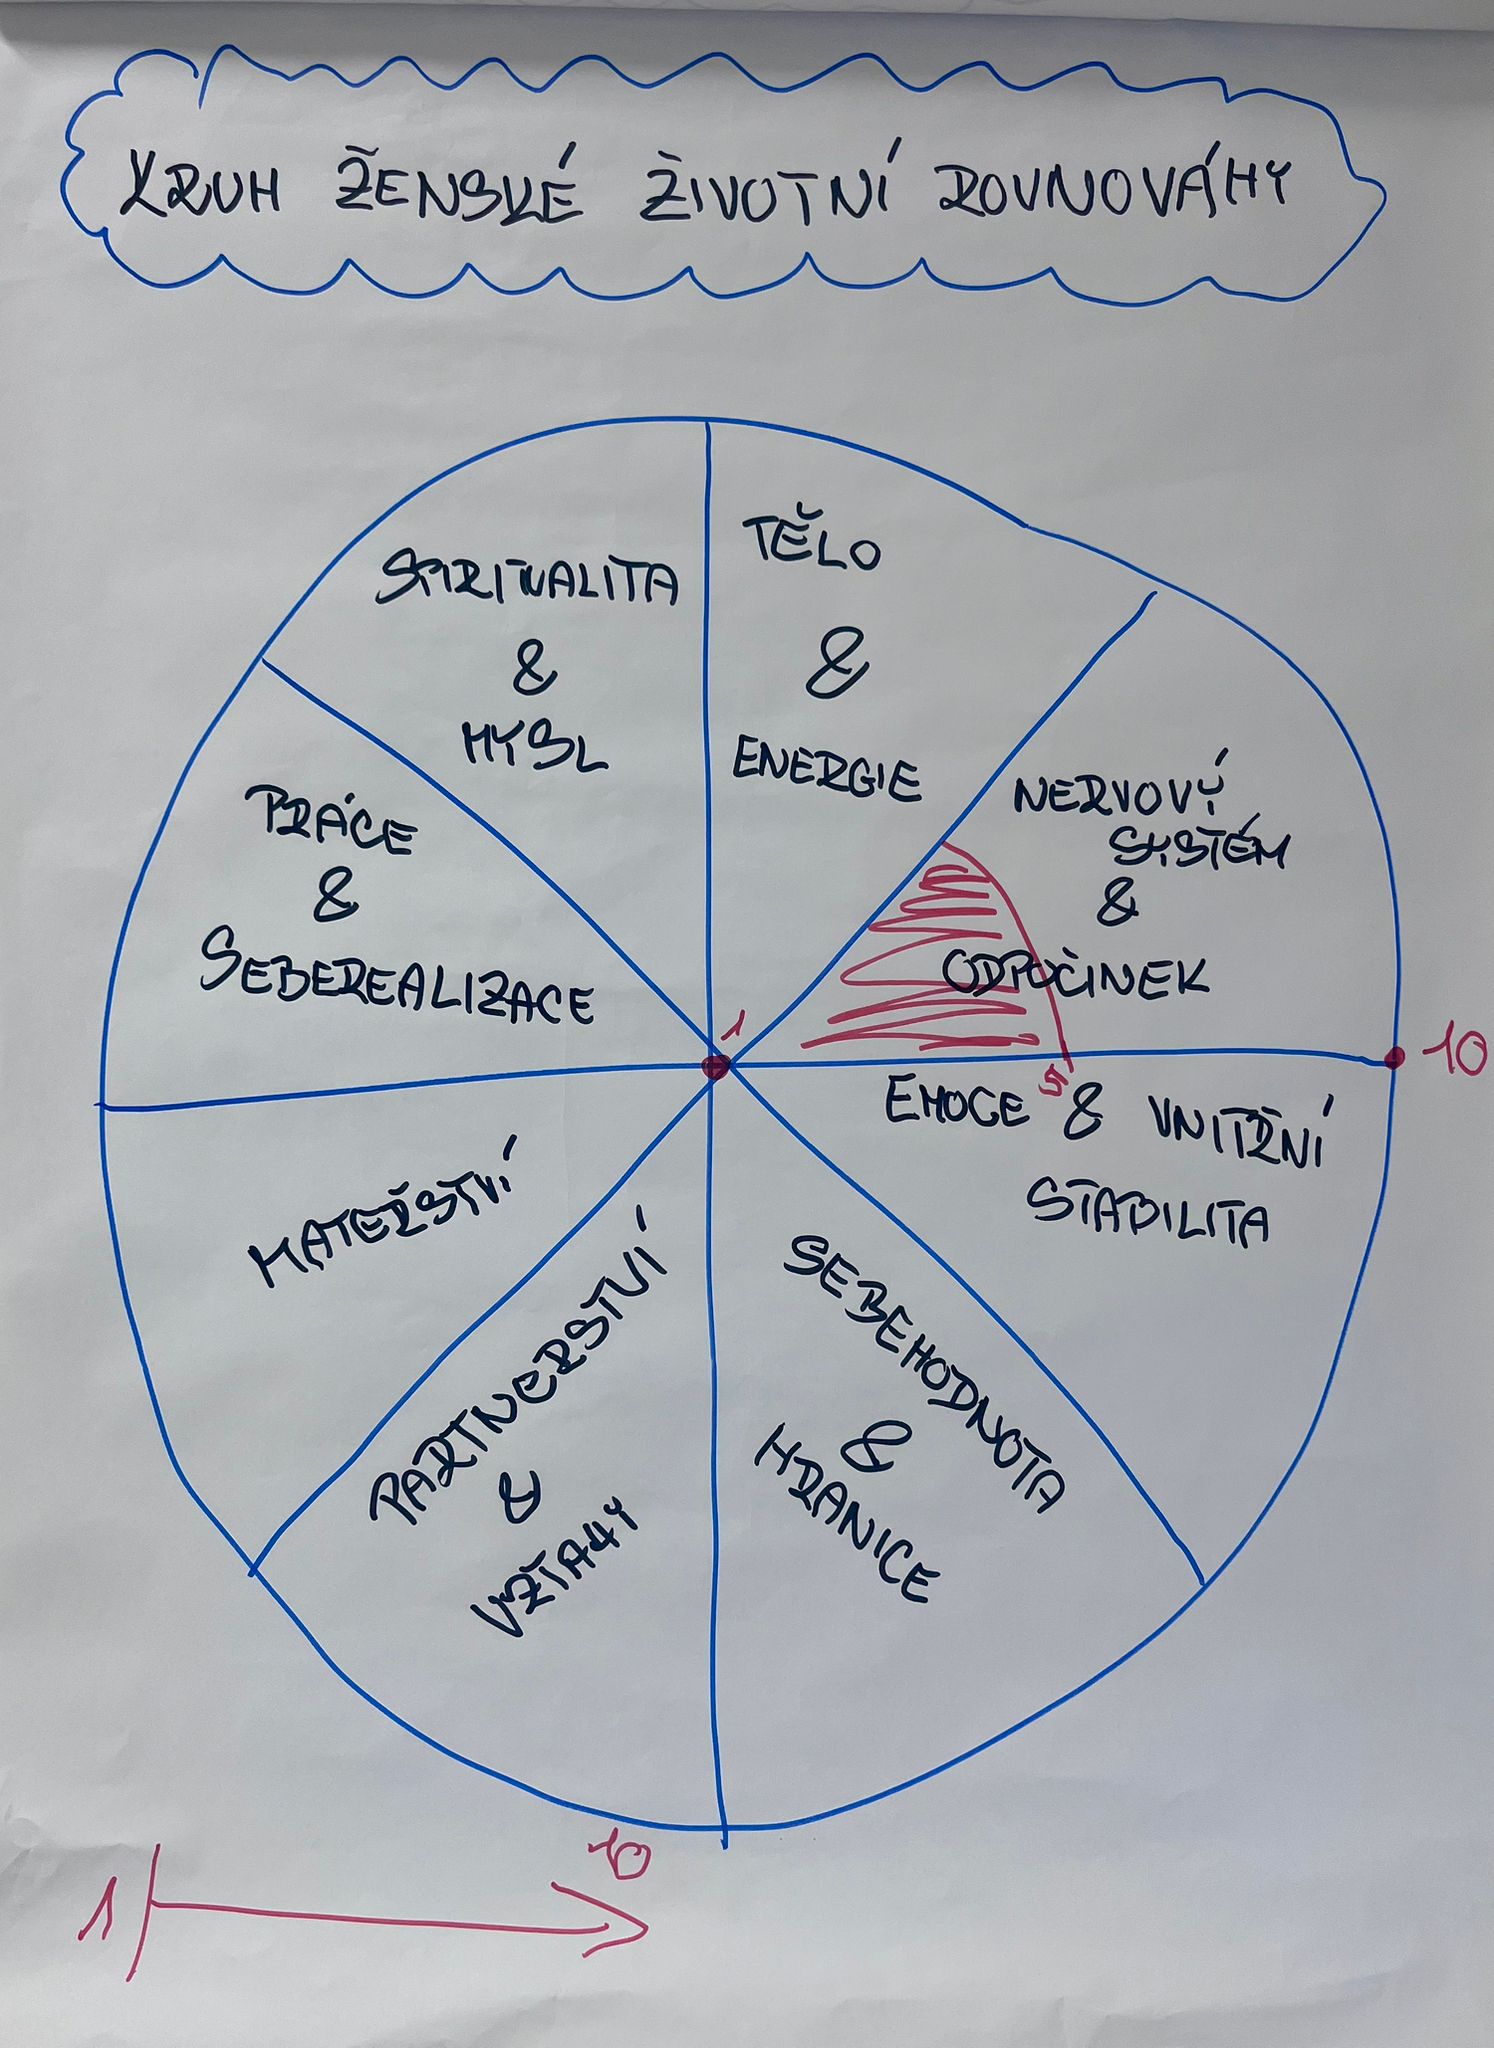 KRUH ŽENSKÉ ŽIVOTNÍ ROVNOVÁHY
TĚLO
&
ENERGIE
NERVOVÝ
SYSTÉM
&
ODPOČINEK
10
5
EMOCE & VNITŘNÍ
STABILITA
SEBEHODNOTA
&
HRANICE
PARTNERSTVÍ
&
VZŤAHY
MATEŘSTVÍ
PRÁCE
&
SEBEREALIZACE
SPIRITUALITA
&
MYSL
1
1
10